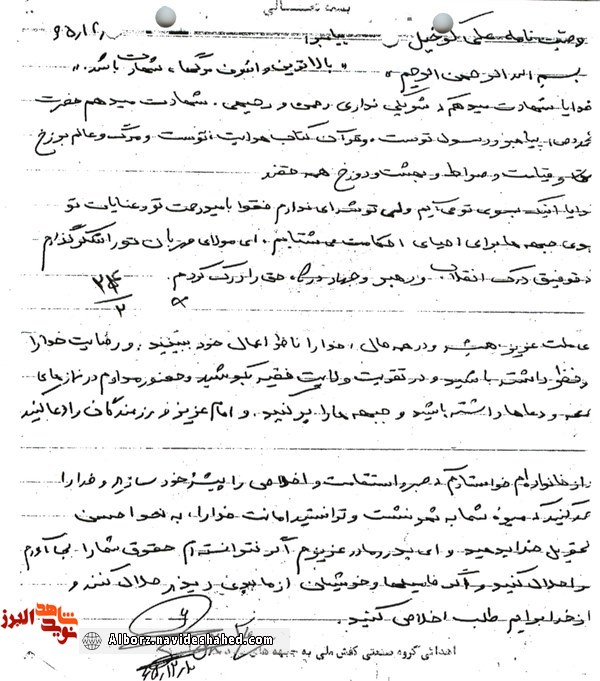 بسمه تعـــالی
وصیت نامه علی گوخیل پیامبر ۶۵/۱۲/
بسم الله الرحمن الرحیم « بالاترین و اشرف مرگها، شهادت باشد.»
خدایا شهادت میدهم که شریکی نداری رحمن و رحیمی. شهادت میدهم حضرت
محمد (ص) پیامبر و رسول توست، و قرآن کتاب هدایت توست و مرگ و عالم برزخ
و قیامت و صراط و بهشت و دوزخ همه حقند
خدایا اینک بسوی تو می آیم ولی توشه ای ندارم فقط با امید رحمت تو و عنایات تو
بسوی جبهه ها برای احیای احکامت می شتابم. ای مولای مهربان تو را شکر گذارم
که توفیق درک انقلاب و رهبر و جهاد در راه حق را درک کردم.
۲۴
۲
ملت عزیز، همیشه و در همه حال، خدا را ناظر اعمال خود ببینید. و رضایت خدا را
در نظر داشته باشید و در تقویت ولایت فقیه بکوشید و حضور مداوم در نمازهای
جمعه و دعاها داشته باشید و جبهه ها را پر کنید. و امام عزیز و رزمندگان را دعا کنید
از خانواده ام خواستارم که صبر و استقامت و اخلاص را پیشه خود سازید و خدا را
شکر کنید که میوه شما به ثمر نشست و توانستید امانت خدا را، به نحو احسن
تحویل خدا بدهید. و ای پدر و مادر عزیزم اگر نتوانسته ام حقوق شما را بجا آورم
مرا حلال کنید و اگر فامیلها و خویشان از ما بدی دیدند حلال کنند و
از خدا برایم طلب اخلاص کنید.
اهدائی گروه صنعتی کفش ملی به جبهه های
۶۵/۱۲/۲۰
نوید شاهد البرز
Alborz.navideshahed.com